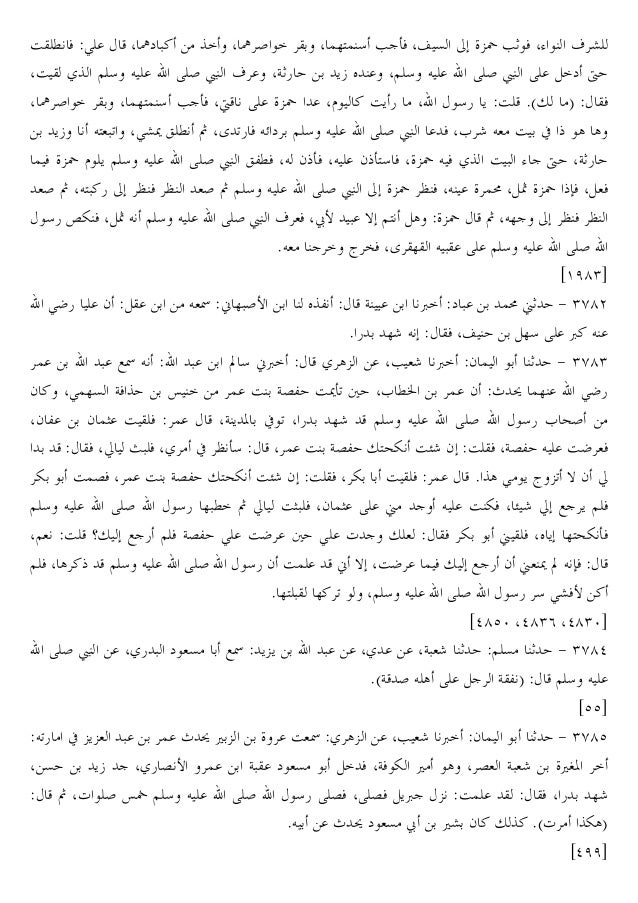 للشرف النواء، فوثب حمزة إلى السيف، فأجب أسنمتهما، وبقر خواصرهما، وأخذ من أكبادهما، قال علي: فانطلقت
حتى أدخل على النبي صلى الله عليه وسلم، وعنده زيد بن حارثة، وعرف النبي صلى الله عليه وسلم الذي لقيت،
فقال: (ما لك). قلت: يا رسول الله، ما رأيت كاليوم، عدا حمزة على ناقتي، فأجب أسنمتهما، وبقر خواصرهما،
وها هو ذا في بيت معه شرب، فدعا النبي صلى الله عليه وسلم بردائه فارتدى، ثم أنطلق يمشي، واتبعته أنا وزيد بن
حارثة، حتى جاء البيت الذي فيه حمزة، فاستأذن عليه، فأذن له، فطفق النبي صلى الله عليه وسلم يلوم حمزة فيما
فعل، فإذا حمزة ثمل، محمرة عينه، فنظر حمزة إلى النبي صلى الله عليه وسلم ثم صعد النظر فنظر إلى ركبته، ثم صعد
النظر فنظر إلى وجهه، ثم قال حمزة: وهل أنتم إلا عبيد لأبي، فعرف النبي صلى الله عليه وسلم أنه ثمل، فنكص رسول
الله صلى الله عليه وسلم على عقبيه القهقرى، فخرج وخرجنا معه.
[١٩٨٣]
٣٧٨٢ – حدثني محمد بن عباد: أخبرنا ابن عيينة قال: أنفذه لنا ابن الأصبهاني: سمعه من ابن عقل: أن عليا رضي الله
عنه كبر على سهل بن حنيف، فقال: إنه شهد بدرا.
٣٧٨٣ – حدثنا أبو اليمان: أخبرنا شعيب، عن الزهري قال: أخبرني سالم ابن عبد الله: أنه سمع عبد الله بن عمر
رضي الله عنهما يحدث: أن عمر بن الخطاب، حين تأيمت حفصة بنت عمر من خنيس بن حذافة السهمي، وكان
من أصحاب رسول الله صلى الله عليه وسلم قد شهد بدرا، توفي بالمدينة، قال عمر: فلقيت عثمان بن عفان،
فعرضت عليه حفصة، فقلت: إن شئت أنكحتك حفصة بنت عمر، قال: سأنظر في أمري، فلبث ليالي، فقال: قد بدا
لي أن لا أتزوج يومي هذا. قال عمر: فلقيت أبا بكر، فقلت: إن شئت أنكحتك حفصة بنت عمر، فصمت أبو بكر
فلم يرجع إلي شيئا، فكنت عليه أوجد مني على عثمان، فلبثت ليالي ثم خطبها رسول الله صلى الله عليه وسلم
فأنكحتها إياه، فلقيني أبو بكر فقال: لعلك وجدت علي حين عرضت علي حفصة فلم أرجع إليك؟ قلت: نعم،
قال: فإنه لم يمنعني أن أرجع إليك فيما عرضت، إلا أني قد علمت أن رسول الله صلى الله عليه وسلم قد ذكرها، فلم
أكن لأفشي سر رسول الله صلى الله عليه وسلم، ولو تركها لقبلتها.
[٤٨٣٠، ٤٨٣٦، ٤٨٥٠]
٣٧٨٤ – حدثنا مسلم: حدثنا شعبة، عن عدي، عن عبد الله بن يزيد: سمع أبا مسعود البدري، عن النبي صلى الله
عليه وسلم قال: (نفقة الرجل على أهله صدقة).
[٥٥]
٣٧٨٥ – حدثنا أبو اليمان: أخبرنا شعيب، عن الزهري: سمعت عروة بن الزبير يحدث عمر بن عبد العزيز في امارته:
أخر المغيرة بن شعبة العصر، وهو أمير الكوفة، فدخل أبو مسعود عقبة ابن عمرو الأنصاري، جد زيد بن حسن،
شهد بدرا، فقال: لقد علمت: نزل جبريل فصلى، فصلى رسول الله صلى الله عليه وسلم خمس صلوات، ثم قال:
(هكذا أمرت). كذلك كان بشير بن أبي مسعود يحدث عن أبيه.
[٤٩٩]